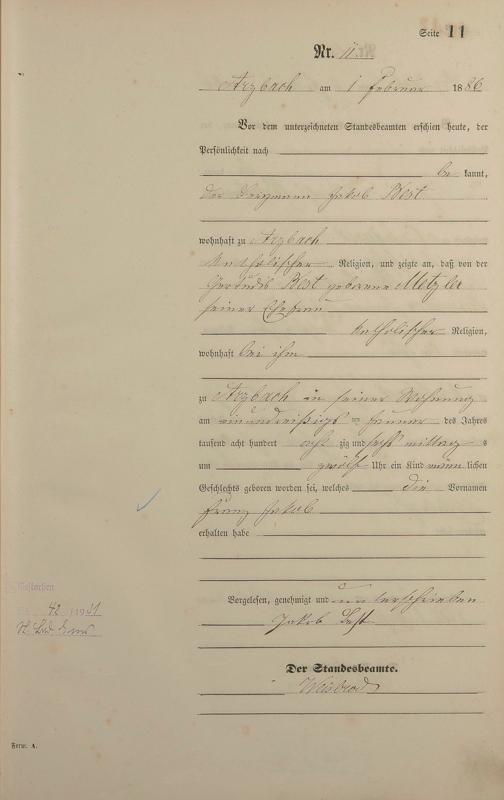 Seite 11
Nr. 11
Arzbach am 1 Februar 1886
Vor dem unterzeichneten Standesbeamten erschien heute, der
Persönlichkeit nach
be kannt,
der Bergmann Jakob Best
wohnhaft zu Arzbach
katholischer Religion, und zeigte an, daß von der
Gertrudis Best geborene Metzler
seiner Ehefrau
katholischer Religion,
wohnhaft bei ihm
zu Arzbach in seiner Wohnung
am einunddreißigsten Januar des Jahres
tausend acht hundert acht zig und sechs mittags
um zwölf Uhr ein Kind männ lichen
Geschlechts geboren worden sei, welches die Vornamen
Franz Jakob
erhalten habe
Vorgelesen, genehmigt und unterschrieben
Jakob Best
Der Standesbeamte.
Weisbrod
Gestorben
42 1931
St. Bad Ems
Form. A.